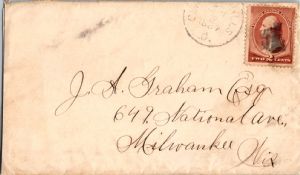 J. A. Graham Esq
647 National Ave.
Milwaukee
Wis
TWO CENTS